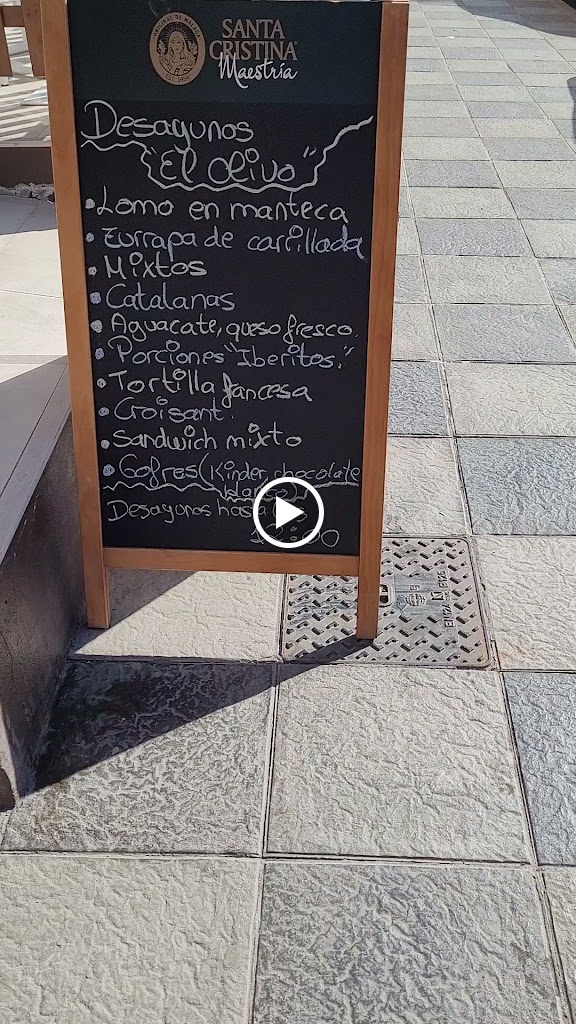 ORIGINAL DE MÁLAGA
SANTA
CRISTINA
Maestría
Desayunos
"El olivo"
• Lomo en manteca
• Zurrapa de carrillada
• Mixtos
• Catalanas
• Aguacate, queso fresco.
• Porciones "Iberitos."
• Tortilla francesa
• Croisant.
• Sandwich mixto
• Gofres (Kinder, chocolate
blanco)
Desayunos hasta
12:00
EN124